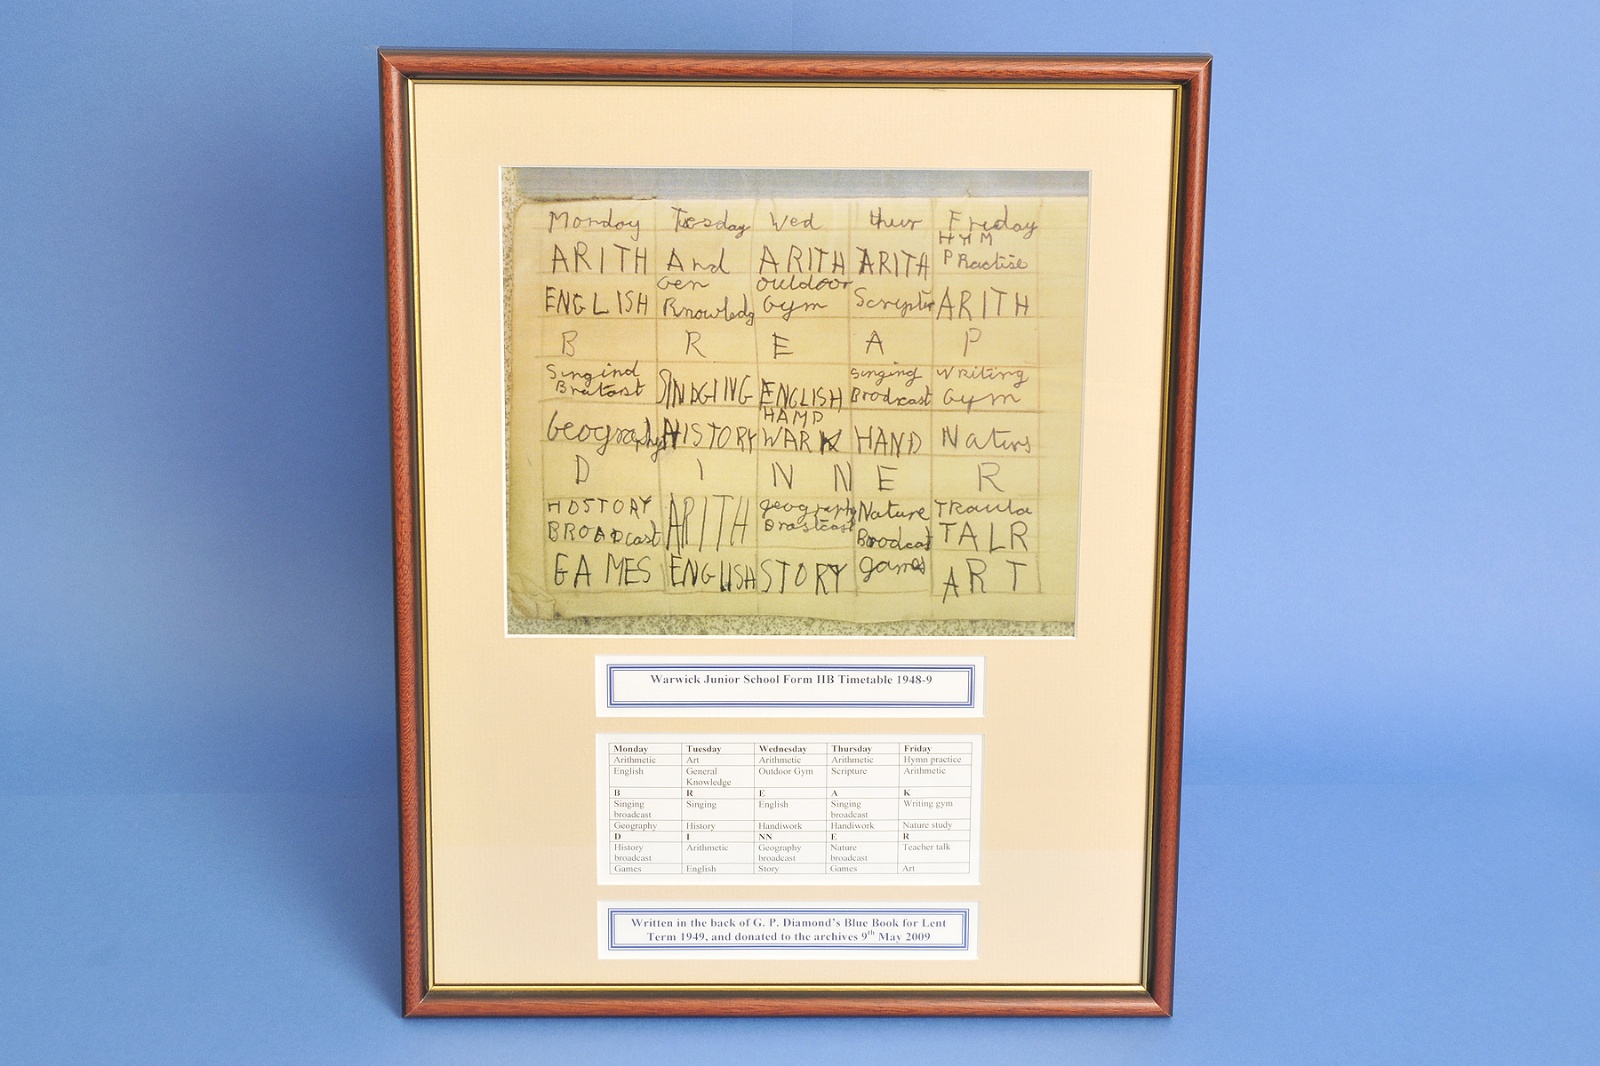 Monday Tuesday Wed thur Friday
HYM
ARITH And ARITH ARITH PRactise
Gen outdoor
ENGLISH Knowledg Gym Scriptur ARITH
B R E A P
Singind singing writing
Breitcast SINDGING ENGLISH Brodxcast Gym
HAMD
Geography HISTORY WARK HAND Naturs
D I N N E R
HDSTORY ARITH geography Nature
BROADcast Brastcast Brodcast TALR
GAMES ENGLISH STORY games ART
Warwick Junior School Form IIB Timetable 1948-9
Monday Tuesday Wednesday Thursday Friday
Arithmetic Art Arithmetic Arithmetic Hymn practice
English General Outdoor Gym Scripture Arithmetic
Knowledge
B R E A K
Singing Singing English Singing Writing gym
broadcast broadcast
Geography History Handiwork Handiwork Nature study
D I NN E R
History Arithmetic Geography Nature Teacher talk
broadcast broadcast broadcast
Games English Story Games Art
Written in the back of G. P. Diamond's Blue Book for Lent
Term 1949, and donated to the archives 9th May 2009